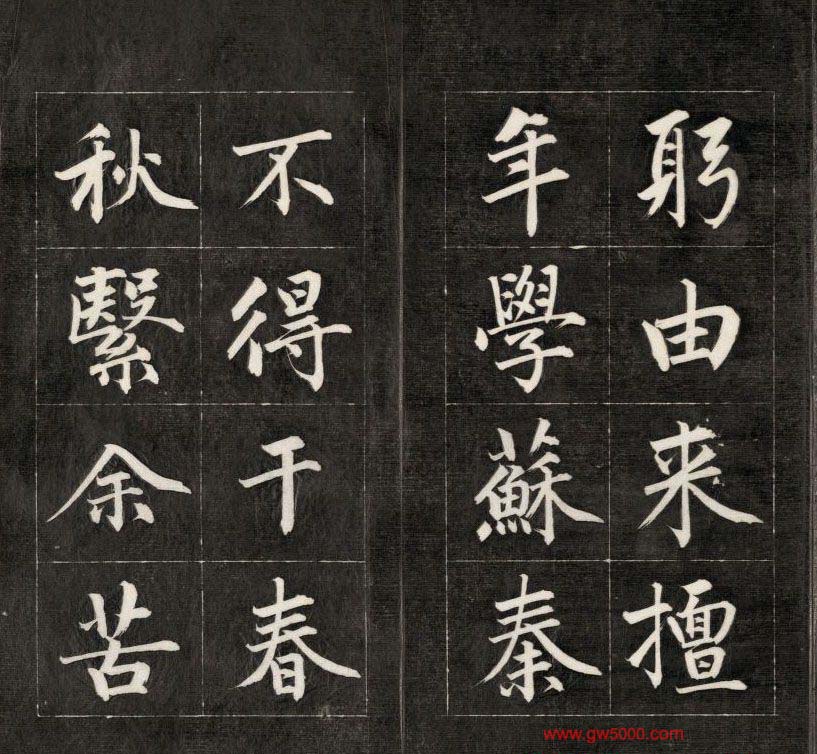 躬由来擅
年學蘇秦
不得干春
秋繄余苦
www.gw5000.com